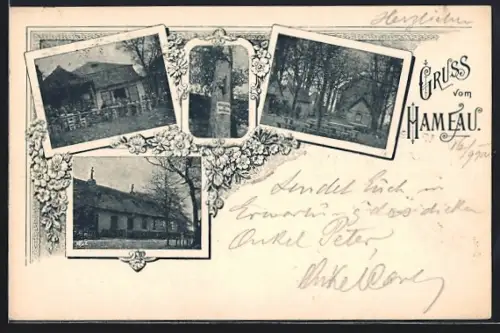 Herzlichen
GRUSS
vom
HAMEAU.
16/9 99
Sendet Euch in
Erwartung des dicken
Onkel Peter,
Onkel Carl